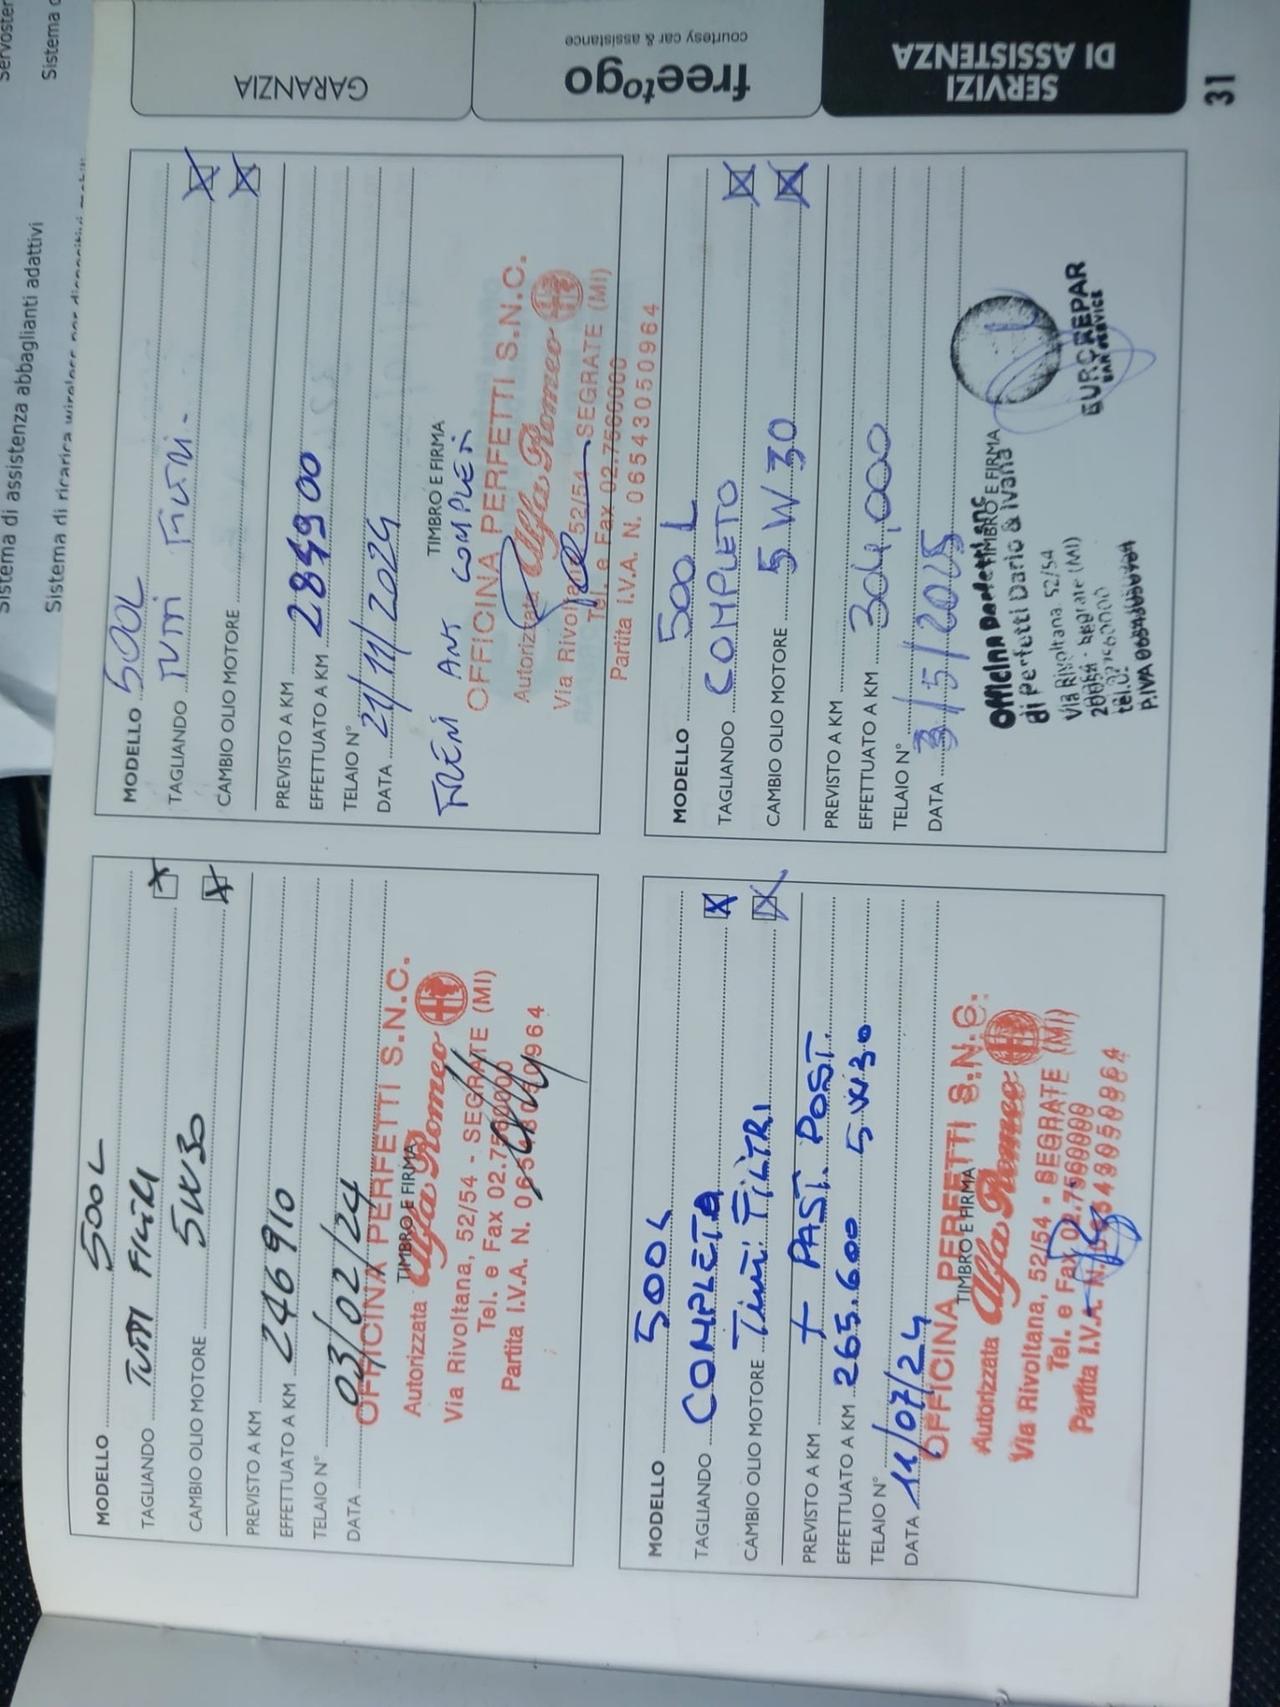 Sistema di assistenza abbaglianti adattivi
GARANZIA
free to go
courtesy car & assistance
SERVIZI
DI ASSISTENZA
31
MODELLO 500L
TAGLIANDO TUTTI FILTRI
CAMBIO OLIO MOTORE 5W30
PREVISTO A KM
EFFETTUATO A KM 246910
TELAIO N°
DATA 03/02/24
TIMBRO E FIRMA
OFFICINA PERFETTI S.N.C.
Autorizzata Alfa Romeo
Via Rivoltana, 52/54 - SEGRATE (MI)
Tel. e Fax 02.7560000
Partita I.V.A. N. 06543050964
MODELLO 500L
TAGLIANDO TUTTI FILTRI.
CAMBIO OLIO MOTORE
PREVISTO A KM
EFFETTUATO A KM 284900
TELAIO N°
DATA 21/11/2024
TIMBRO E FIRMA
FRENI ANT COMPLETI
OFFICINA PERFETTI S.N.C.
Autorizzata Alfa Romeo
Via Rivoltana 52/54 - SEGRATE (MI)
Tel. e Fax 02.7560000
Partita I.V.A. N. 06543050964
MODELLO 500L
TAGLIANDO COMPLETO
CAMBIO OLIO MOTORE TUTTI FILTRI
+ PAST. POST.
PREVISTO A KM
EFFETTUATO A KM 265.600 5W30
TELAIO N°
DATA 11/07/24
TIMBRO E FIRMA
OFFICINA PERFETTI S.N.C.
Autorizzata Alfa Romeo
Via Rivoltana, 52/54 - SEGRATE (MI)
Tel. e Fax 02.7560000
Partita I.V.A. N. 06543050964
MODELLO 500L
TAGLIANDO COMPLETO
CAMBIO OLIO MOTORE 5W30
PREVISTO A KM
EFFETTUATO A KM 304,000
TELAIO N°
DATA 3/5/2025
TIMBRO E FIRMA
Officina Perfetti snc
di Perfetti Dario & Ivana
Via Rivoltana, 52/54
Segrate (MI)
tel.
P.IVA 06543050964
EUROREPAR
CAR SERVICE